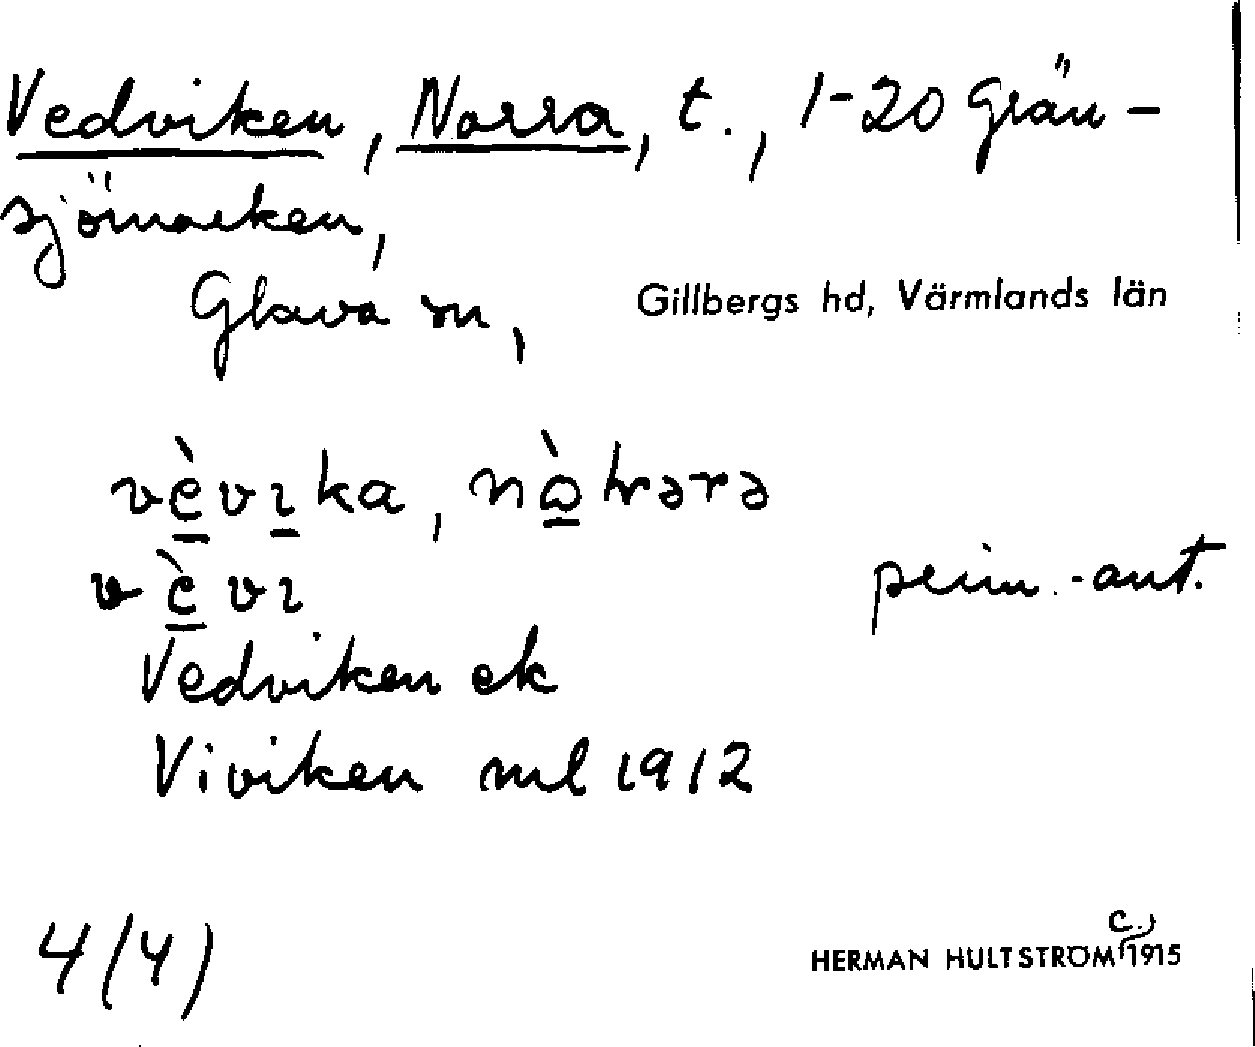 Vedviken, Norra, t., 1-20 Grän-
sjömarken,
Glava sn, Gillbergs hd, Värmlands län
vèvɪka, nò hrərə
vèvɪ prim.-ant.
Vedviken ek
Viviken ml 1912
4(4) HERMAN HULTSTRÖM c.1915